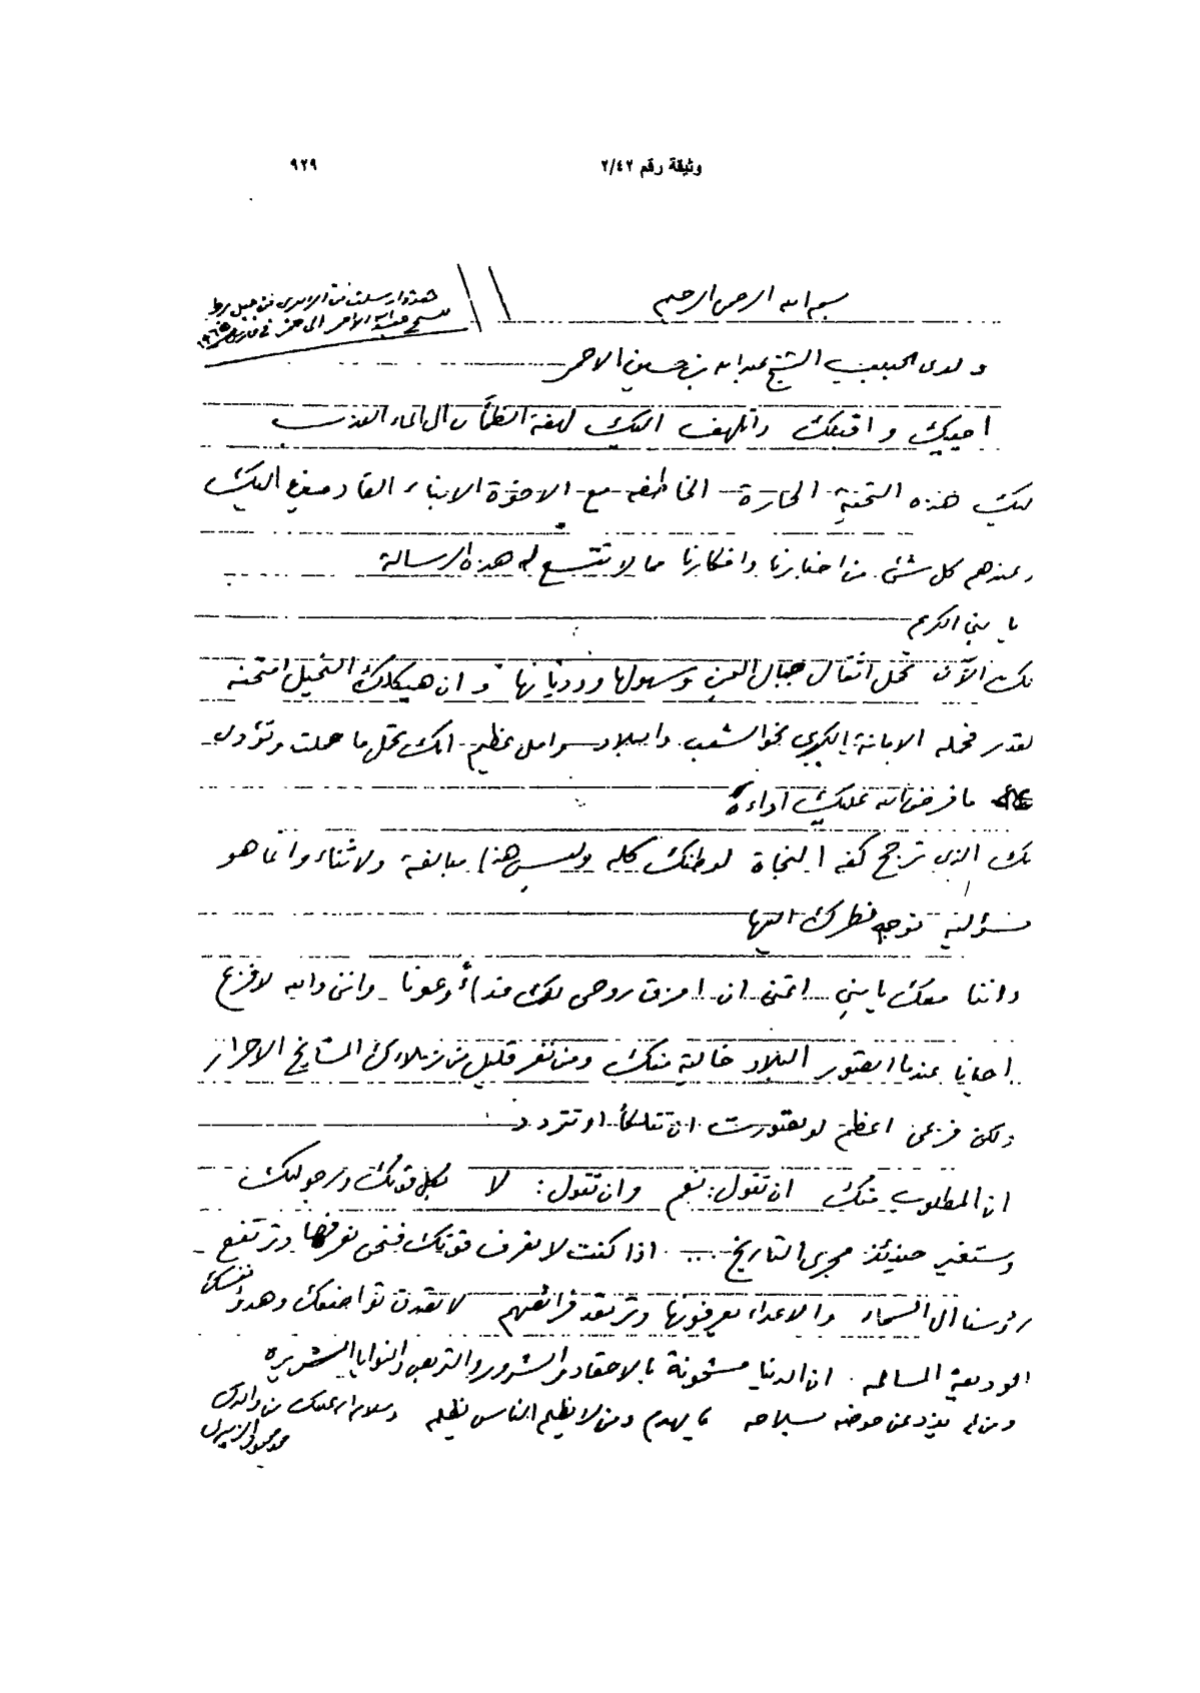 وثيقة رقم ٢/٤٢ ٩٢٩
بسم الله الرحمن الرحيم
ولدي الحبيب الشيخ عبدالله بن حسين الاحمر
احييك واقبلك واتلهف اليك لهفة الظمآن الى الماء العذب
اليك هذه التحية الحارة الخاطفه مع الاخوة الابناء القادمين اليك
وعندهم كل شئ من اخبارنا وافكارنا ما لا تتسع له هذه الرسالة
يا بني الكريم
انك الآن تحمل اثقال جبال اليمن وسهولها ووديانها وان هيكلك النحيل
لقدر الامانة الكبرى نحو الشعب والبلاد عظيم انك تحمل ما حملت وتؤدى
ما فرض الله عليك اداءه
انك الذي ترجح كفة النجاة لوطنك كله وليس هذا مبالغة ولا ثناء وانما هو
مسؤلية نوجه نظرك اليها
واننا معك يا بني اتمنى ان امزق روحى لك فداءً وعونا وانني والله لافزع
احيانا عندما اتصور البلاد خالية منك ومن نفر قليل من زملائك المشايخ الاحرار
ولكن فزعى اعظم لو تصورت ان تتلكأ او تتردد
ان المطلوب منك ان تقول: نعم وان تقول: لا بكل قوتك ورجولتك
وستغير حينئذ مجرى التاريخ .... اذا كنت لا تعرف قوتك فنحن نعرفها وترتفع
رؤسنا الى السماء والاعداء يعرفونها وترتعد فرائصهم لا تواضعك وهدؤ نفسك
الوديعة المسالمه . ان الدنيا مشحونة بالاحقاد والشرور والتربص والنوايا الشريره
ومن لم يذد عن حوضه بسلاحه يهدم ومن لا يظلم الناس يظلم وسلام الله عليك من والدك
محمد محمود الزبيري